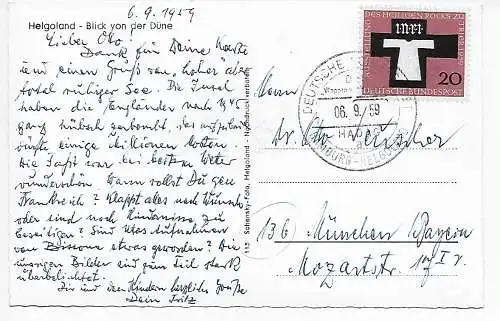 6.9.1959
Helgoland - Blick von der Düne
Lieber Otto!
Dank für Deine Karte
und einen Gruß von "hoher" aber
total ruhiger See. Die Insel
haben die Engländer nach 1945
ganz hübsch zerbombt, das
dürfte einige Millionen kosten.
Die Fahrt war bei dem Wetter
wunderschön. Wann wollst Du gen
Frankreich? Klappt alles nach Wunsch
oder sind noch Hindernisse zu
beseitigen? Sind Aufnahmen
von etwas geworden? Die
unsrigen Bilder sind zum Teil stark
überbelichtet.
Dir und den Kindern herzliche Grüße
Dein Fritz
113 Schensky-Foto, Helgoland - Nachdruck verboten
AUSSTELLUNG DES HEILIGEN ROCKS ZU TRIER 1959
INRI
20
DEUTSCHE BUNDESPOST
DEUTSCHE
06.9.59
HAMBURG-HELGOLAND
Herrn
Dr. Otto Fischer
13b München Bayern
Mozartstr. 17 I r.